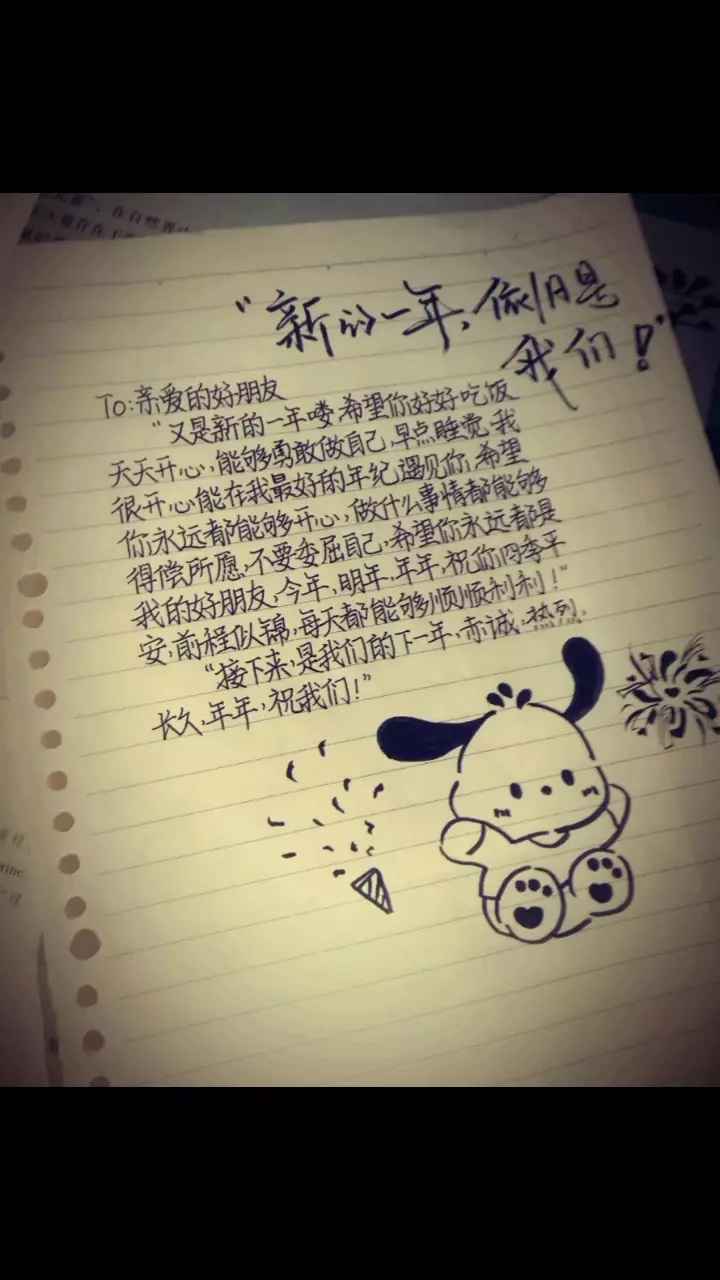 在自然界
人童存在于
"新的一年，依旧是
我们！"
To：亲爱的好朋友
"又是新的一年喽，希望你好好吃饭
天天开心，能够勇敢做自己，早点睡觉，我
很开心能在我最好的年纪遇见你，希望
你永远都能够开心，做什么事情都能够
得偿所愿，不要委屈自己，希望你永远都是
我的好朋友，今年，明年，年年，祝你四季平
安，前程似锦，每天都能够顺顺利利！"
"接下来，是我们的下一年，赤诚，热烈，
长久，年年，祝我们！"